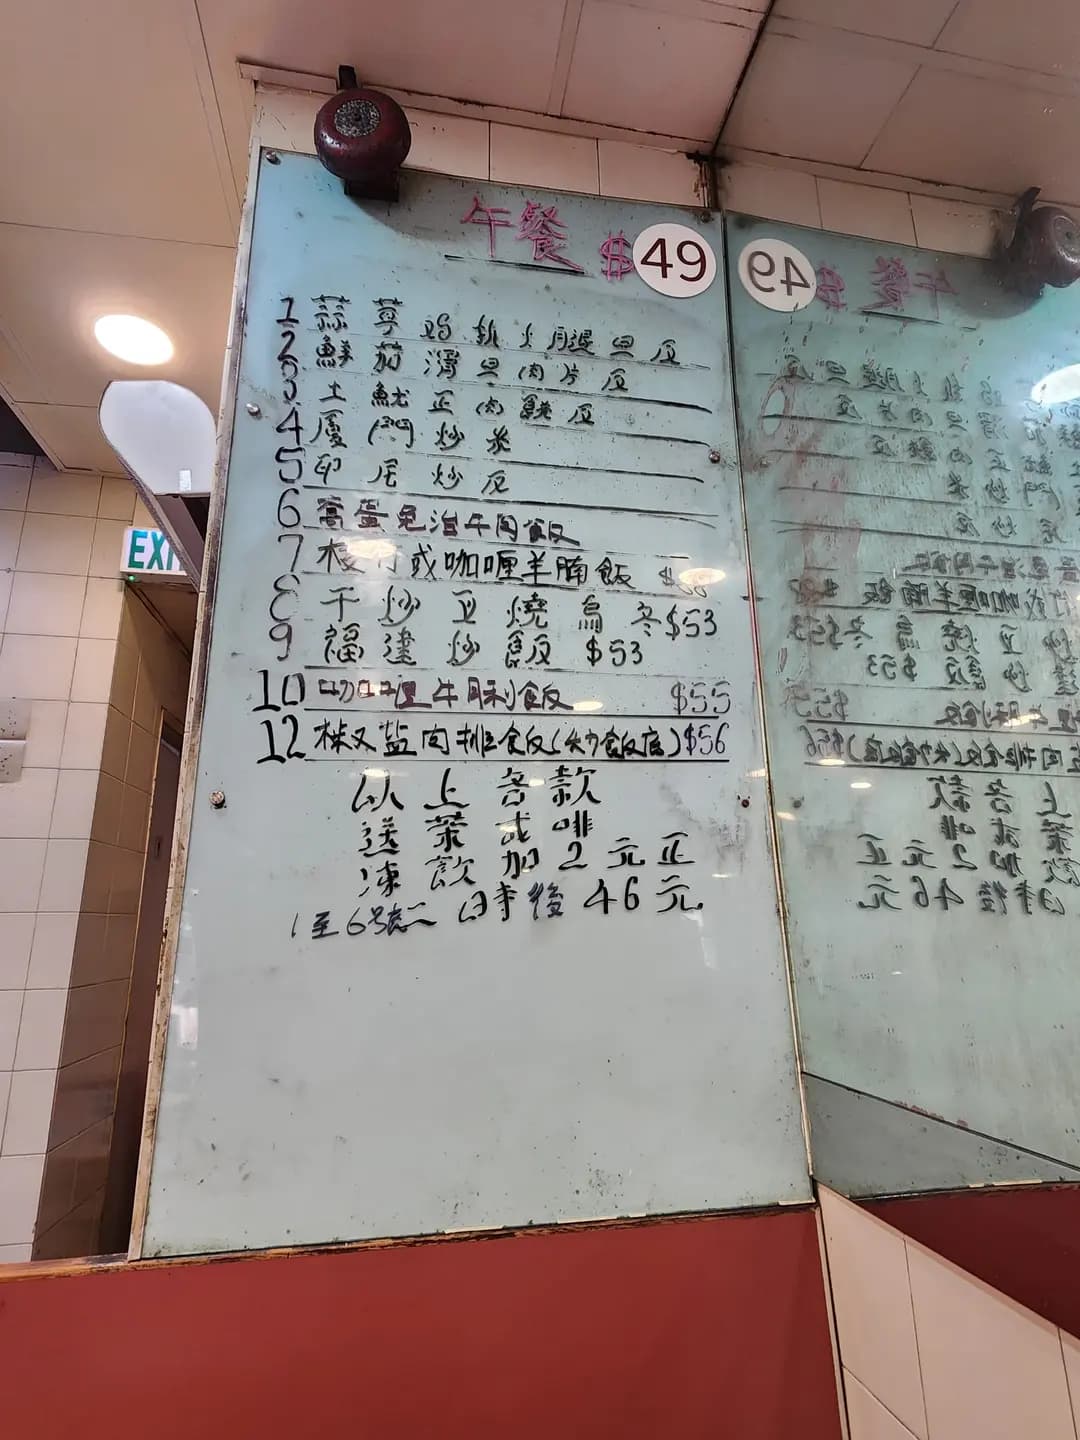 午餐 $49
1 蒜 茸 鸡 扒 火 腿 旦 反
2 鮮 茄 滑 旦 肉 片 反
3 土 魷 正 肉 餅 反
4 廈 門 炒 米
5 印 尼 炒 反
6 窩蛋免治牛肉飯
7 枝竹或咖喱羊腩飯
8 干 炒 豆 燒 烏 冬 $53
9 福 建 炒 飯 $53
10 咖喱牛脷飯 $55
12 椒盐肉排飯(炒飯底) $56
以 上 各 款
送 茶 或 啡
凍 飲 加 2 元 正
1至6号 二 時 後 46 元
EXIT